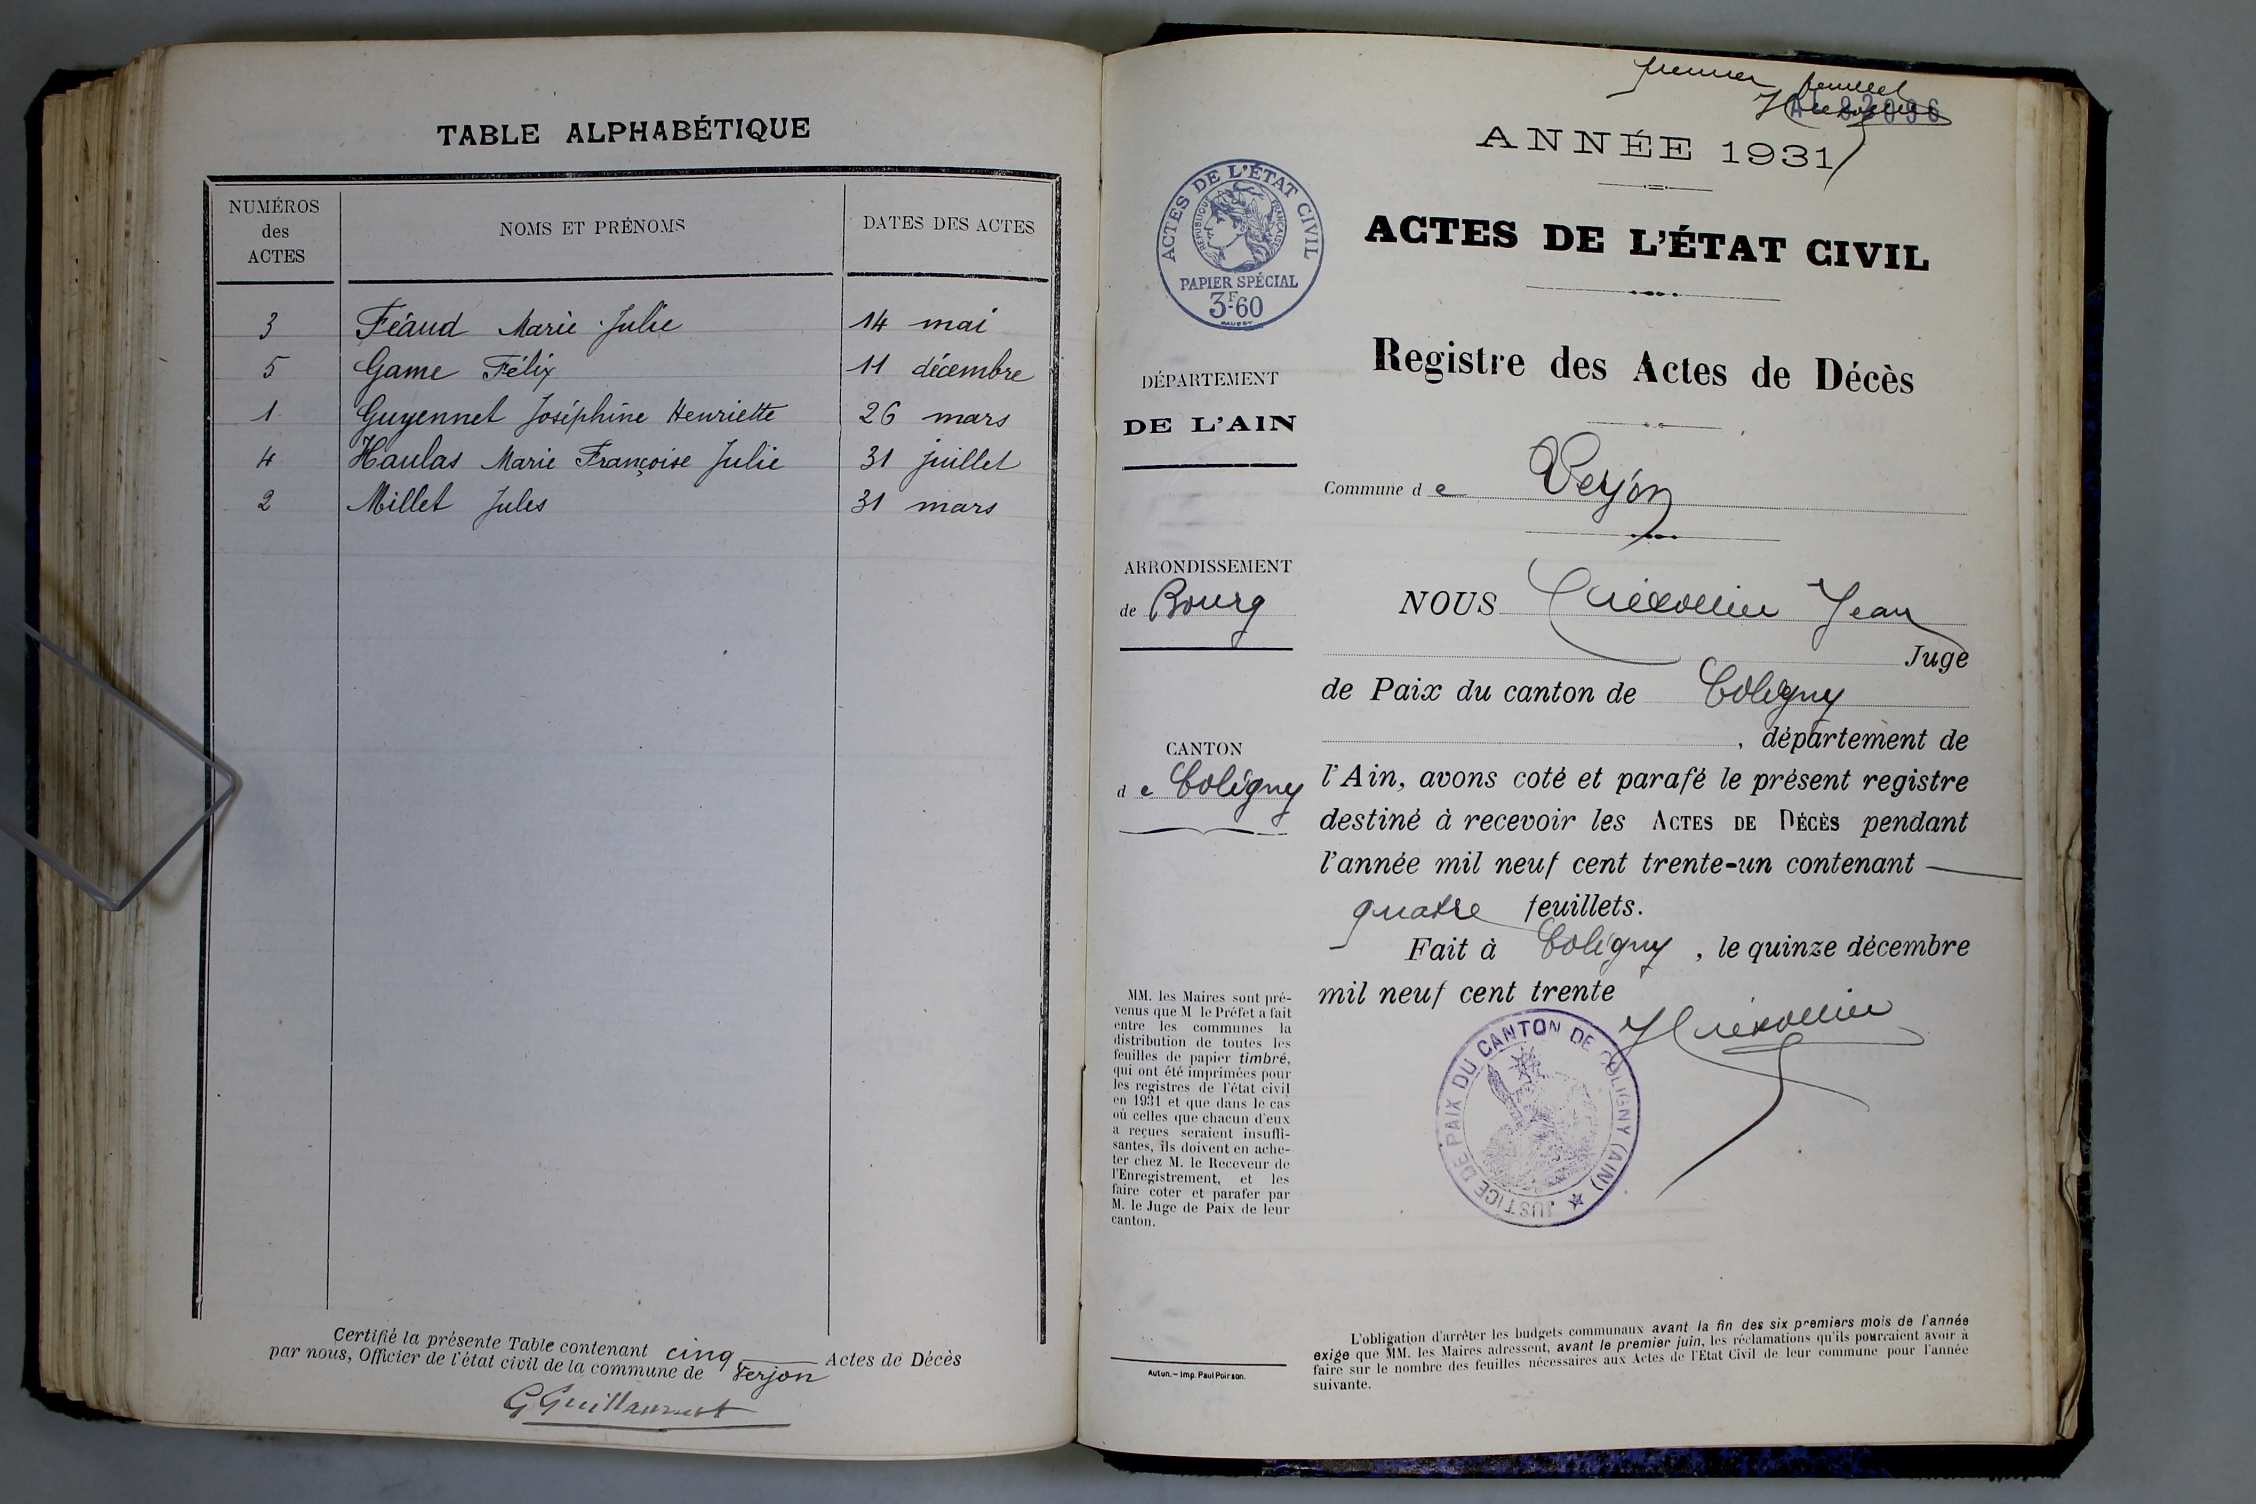 TABLE ALPHABÉTIQUE
NUMÉROS
des
ACTES
NOMS ET PRÉNOMS
DATES DES ACTES
3 Féaud Marie Julie 14 mai
5 Game Félix 11 décembre
1 Guyennet Joséphine Henriette 26 mars
4 Haulas Marie Françoise Julie 31 juillet
2 Millet Jules 31 mars
Certifié la présente Table contenant cinq Actes de Décès
par nous, Officier de l'état civil de la commune de Verjon
G Guillaumot
premier feuillet
ANNÉE 1931
ACTES DE L'ÉTAT CIVIL
RÉPUBLIQUE FRANÇAISE
PAPIER SPÉCIAL
3F60
ACTES DE L'ÉTAT CIVIL
Registre des Actes de Décès
DÉPARTEMENT
DE L'AIN
Commune de Verjon
ARRONDISSEMENT
de Bourg
NOUS Jean
Juge
de Paix du canton de Coligny
, département de
CANTON
de Coligny
l'Ain, avons coté et parafé le présent registre
destiné à recevoir les ACTES DE DÉCÈS pendant
l'année mil neuf cent trente-un contenant
quatre feuillets.
Fait à Coligny, le quinze décembre
mil neuf cent trente
JUSTICE DE PAIX DU CANTON DE COLIGNY (AIN)
MM. les Maires sont pré-
venus que M le Préfet a fait
entre les communes la
distribution de toutes les
feuilles de papier timbré,
qui ont été imprimées pour
les registres de l'état civil
en 1931 et que dans le cas
où celles que chacun d'eux
a reçues seraient insuffi-
santes, ils doivent en ache-
ter chez M. le Receveur de
l'Enregistrement, et les
faire coter et parafer par
M. le Juge de Paix de leur
canton.
Autun. - Imp. Paul Poirson.
L'obligation d'arrêter les budgets communaux avant la fin des six premiers mois de l'année
exige que MM. les Maires adressent, avant le premier juin, les réclamations qu'ils pourraient avoir à
faire sur le nombre des feuilles nécessaires aux Actes de l'Etat Civil de leur commune pour l'année
suivante.